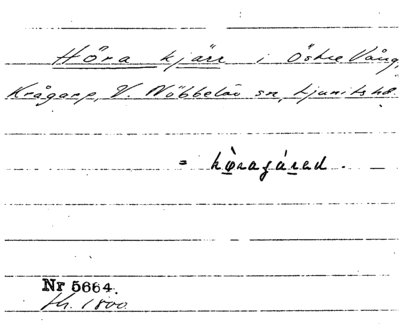 Höra kjärr i Östre Vång,
Krågarp, V. Nöbbelöv sn, Ljunits hd.
= hörajárad. —
Nr 5664.
fr. 1800